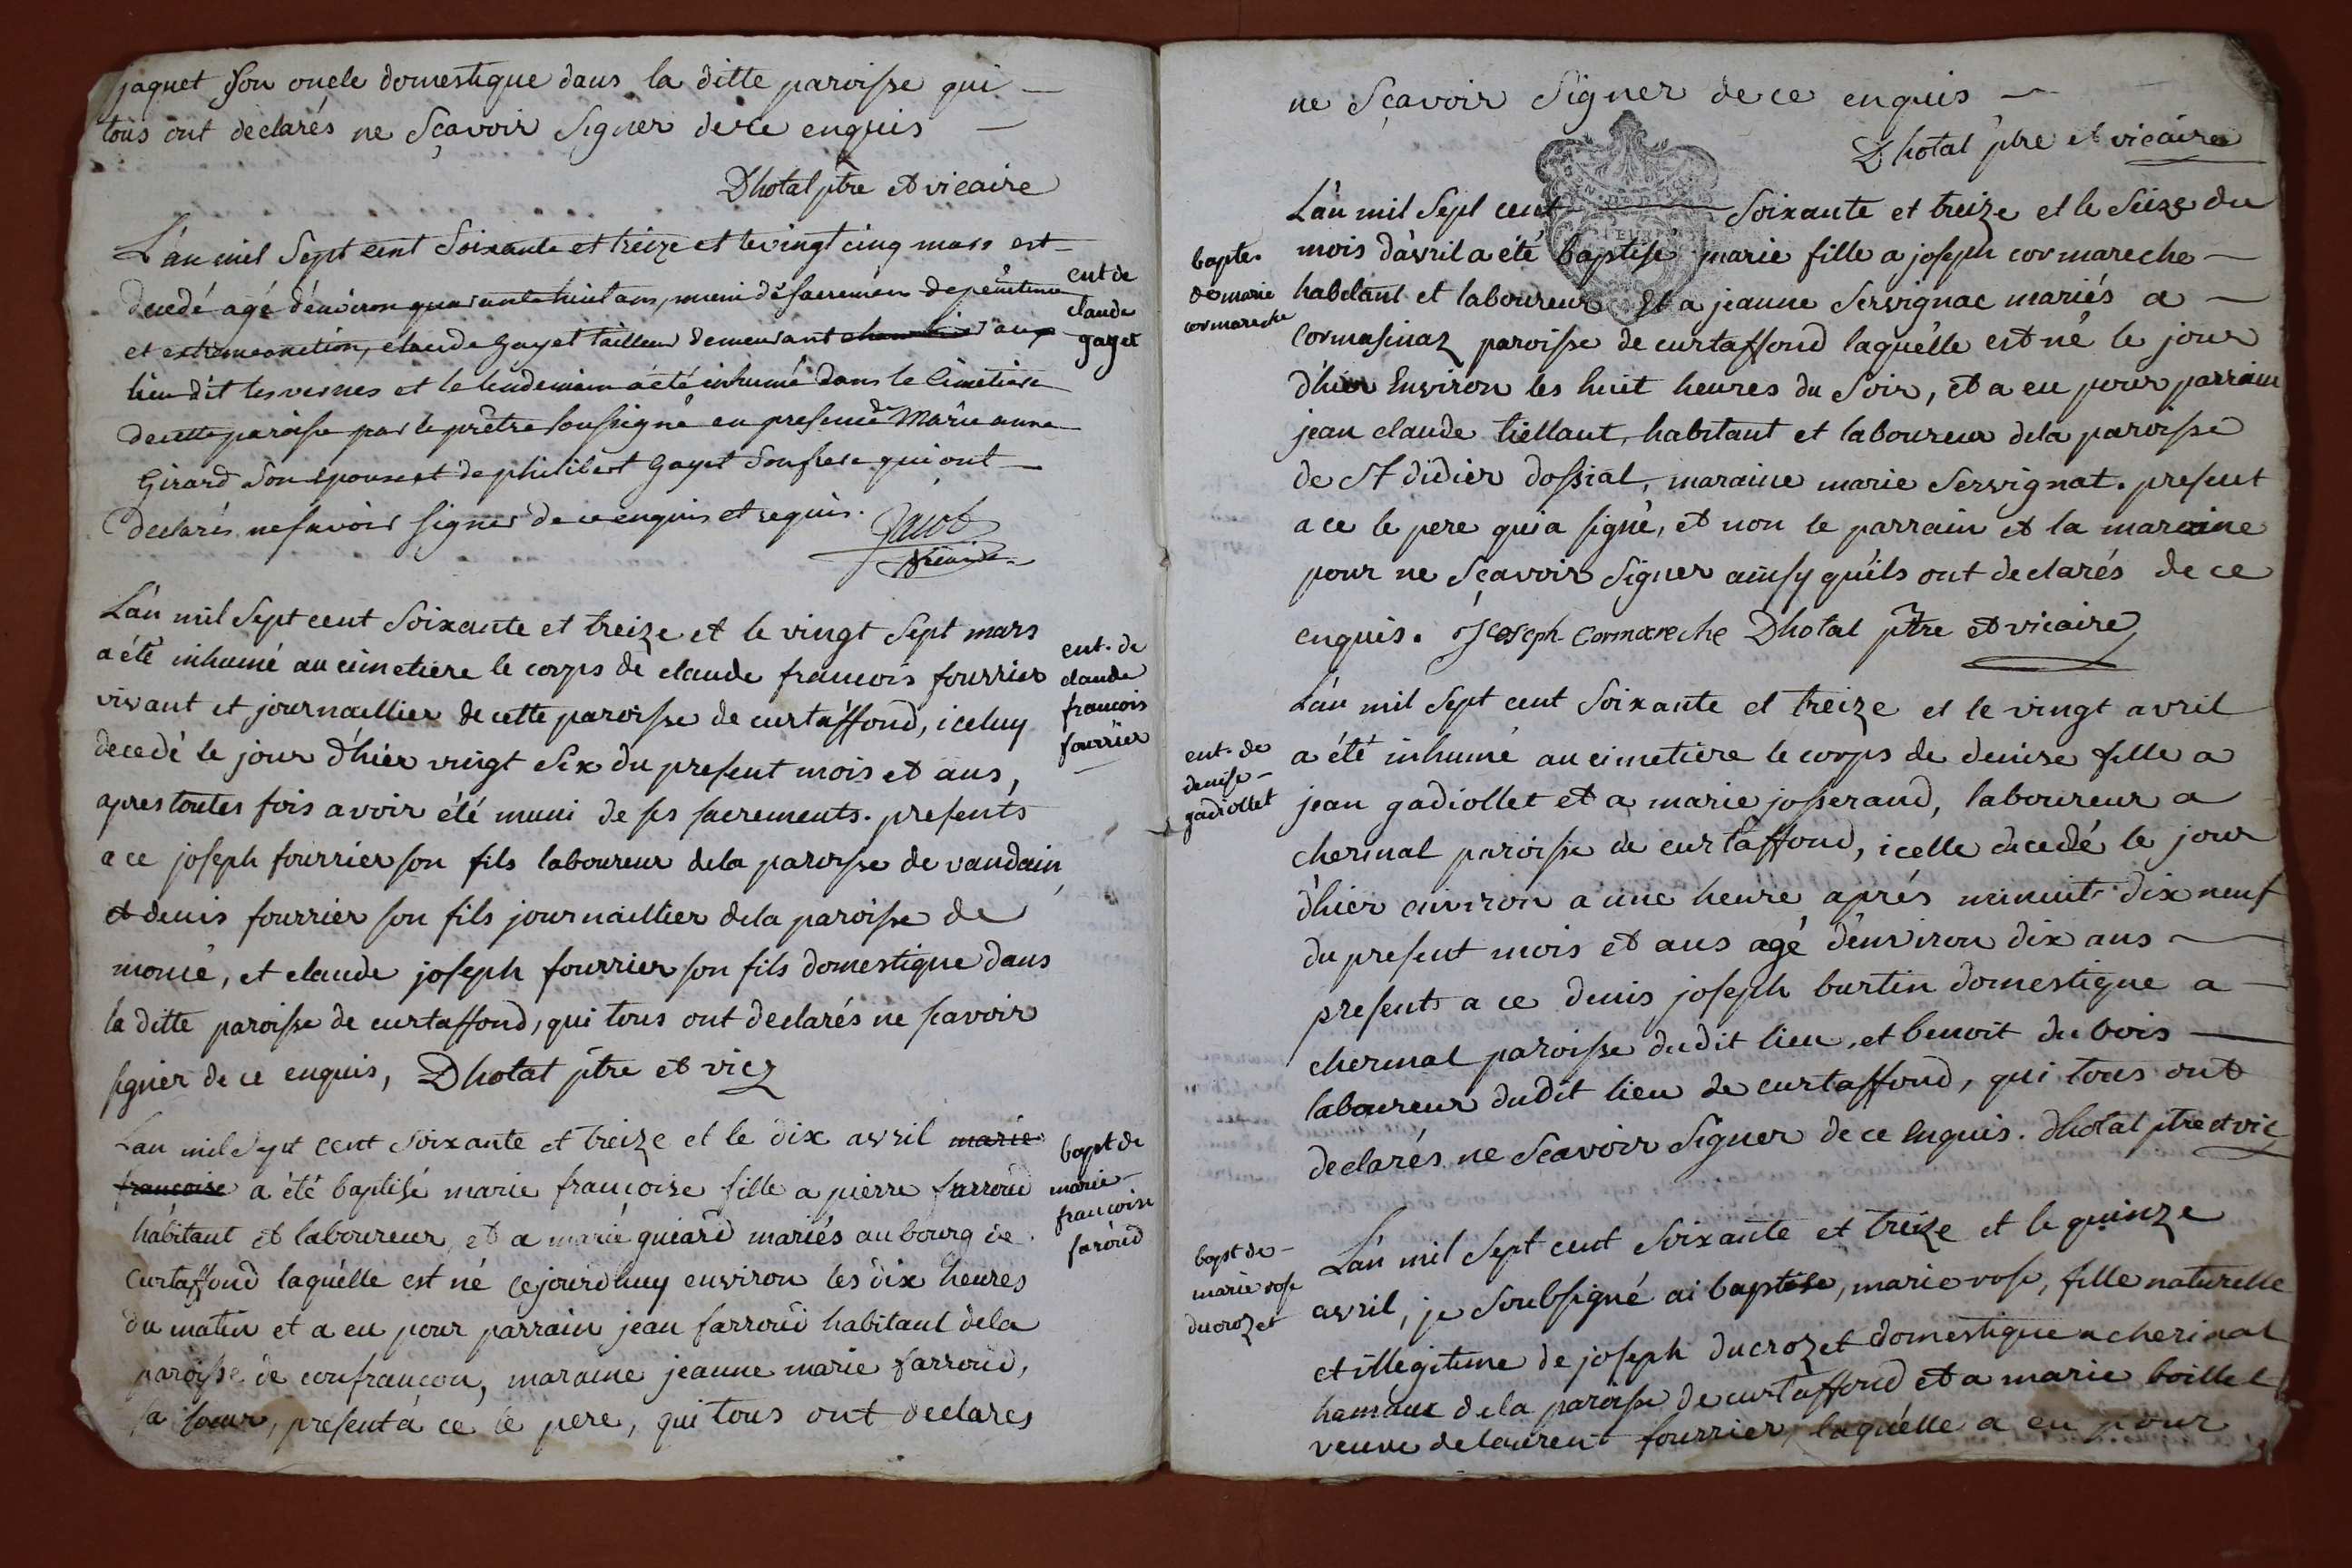 jaquet son oncle domestique dans la ditte paroisse qui
tous ont declarés ne sçavoir signer de ce enquis
Dhotal ptre et vicaire
L'an mil sept cent soixante et treize et le vingt cinq mars est
decedé agé d'environ quarante huit ans, muni des sacremens de penitence
et extreme onction, claude gayet tailleur demeurant au
lieu dit les vernes et le lendemain a été inhumé dans le cimetiere
de cette paroisse par le prêtre soussigné en presence de Marie anne
Girard son epouse et de philibert Gayet son frere qui ont
declarés ne savoir signer de ce enquis et requis. Jacob
vicaire
ent de
claude
gayet
L'an mil sept cent soixante et treize et le vingt sept mars
a été inhumé au cimetiere le corps de claude francois fourrier
vivant et journaellier de cette paroisse de curtaffond, iceluy
decedé le jour d'hier vingt six du present mois et ans,
apres toutes fois avoir été muni de ses sacrements. presents
a ce joseph fourrier son fils laboureur dela paroisse de vandain
et denis fourrier son fils journaellier dela paroisse de
moncé, et claude joseph fourrier son fils domestique dans
la ditte paroisse de curtaffond, qui tous ont declarés ne scavoir
signer de ce enquis, Dhotal ptre et vicz
ent. de
claude
francois
fourrier
L'an mil sept cent soixante et treize et le dix avril marie
francoise a été baptisé marie françoise fille a pierre farroud
habitant et laboureur, et a marie guiard mariés au bourg de
curtaffond laquélle est né cejourdhuy environ les dix heures
du matin et a eu pour parrain jean farroud habitant dela
paroisse de confrancon, maraine jeanne marie farroud,
sa soeur, present a ce le pere, qui tous ont declares
bapt de
marie
francoise
faroud
ne sçavoir signer de ce enquis
Dhotal ptre et vicaire
L'an mil sept cent soixante et treize et le seize du
mois d'avril a été baptisé marie fille a joseph cormareche
habitant et laboureur et a jeanne servignac mariés a
Cormasinaz paroisse de curtaffond laquélle est né le jour
d'hier environ les huit heures du soir, et a eu pour parrain
jean claude tiellant, habitant et laboureur dela paroisse
de St didier dossial, maraine marie servignat. present
a ce le pere qui a signé, et non le parrain et la maraine
pour ne sçavoir signer ainsy qu'ils ont declarés de ce
enquis. Joseph cormareche Dhotal ptre et vicaire
bapte.
de marie
cormareche
L'an mil sept cent soixante et treize et le vingt avril
a été inhumé au cimetiere le corps de denise fille a
jean gadiollet et a marie josserand, laboureur a
cherinal paroisse de curtaffond, icelle decedé le jour
d'hier environ a une heure aprés minuit dix neuf
du present mois et ans agé d'environ dix ans
presents a ce denis joseph burtin domestique a
cherinal paroisse dudit lieu, et benoit du bois
laboureur dudit lieu de curtaffond, qui tous ont
declarés ne scavoir signer de ce enquis. dhotal ptre et vic
ent. de
denise
gadiollet
L'an mil sept cent soixante et treize et le quinze
avril, je soubsigné ai baptisé, marie rose, fille naturelle
et illegitime de joseph ducrozet domestique a cherinal
hamaux dela paroisse de curtaffond et a marie boillet
veuve de laurent fourrier laquélle a eu pour
bapt de
marie rose
ducrozet